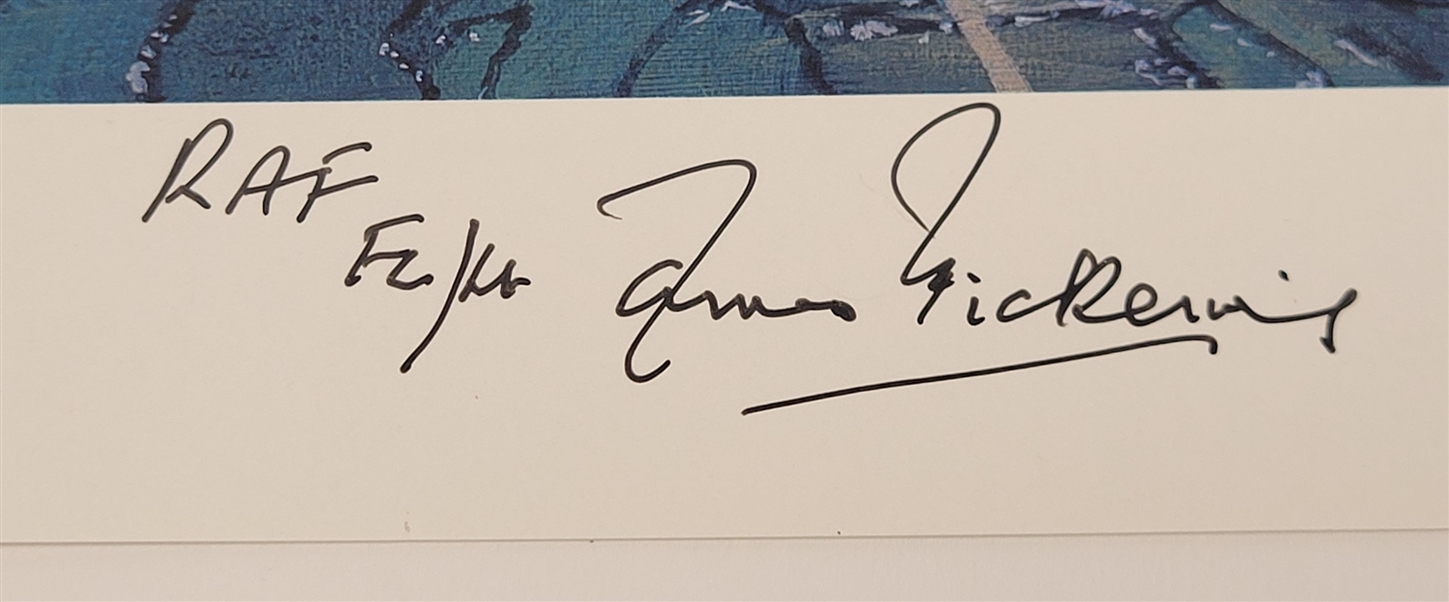 RAF
F/Lt James Pickering